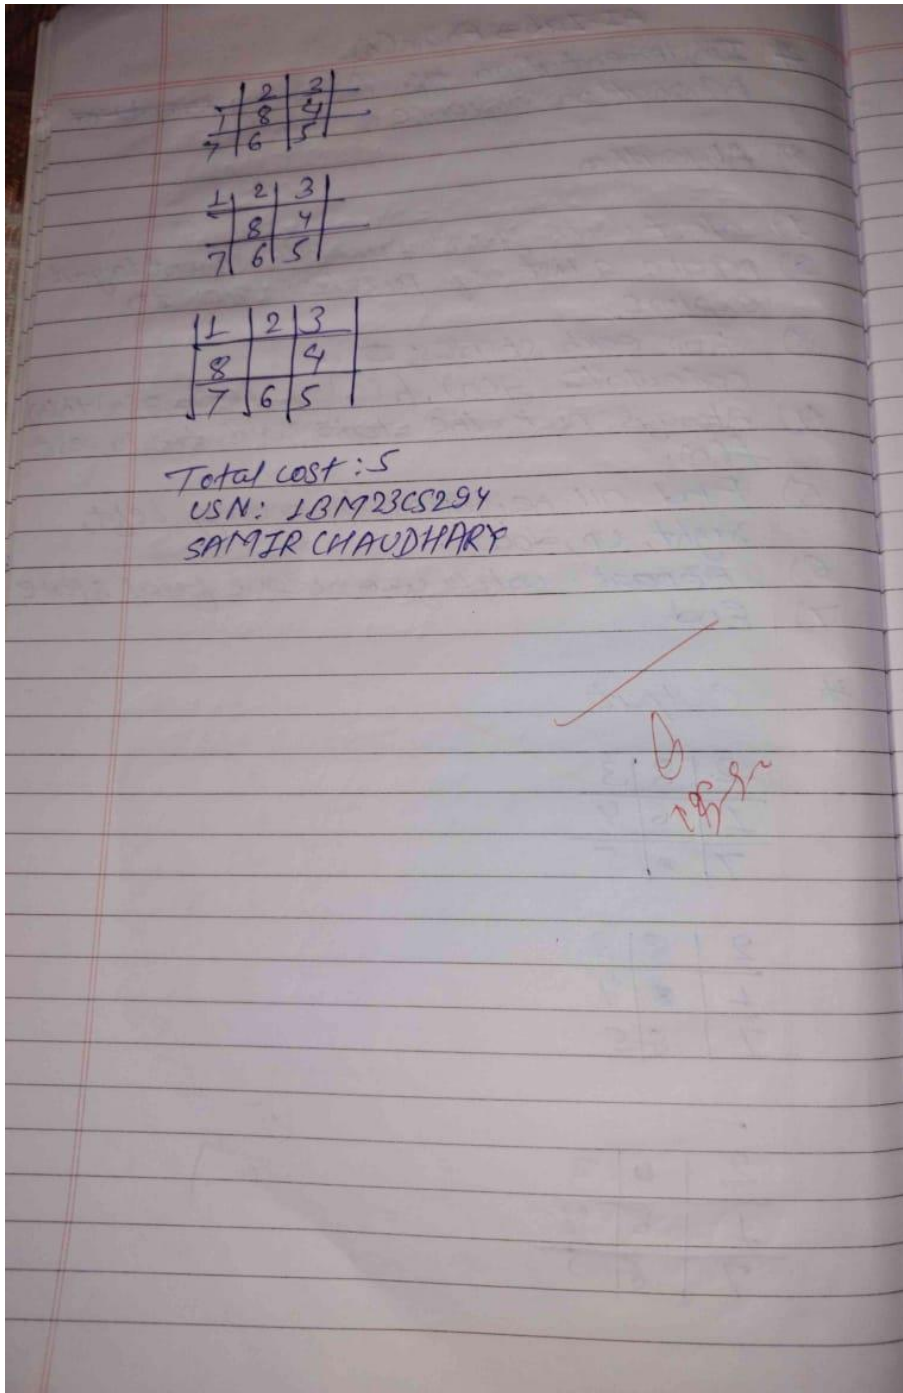 2 3
1 8 4
7 6 5
1 2 3
8 4
7 6 5
1 2 3
8 4
7 6 5
Total cost: 5
USN: 1BM23CS294
SAMIR CHAUDHARY